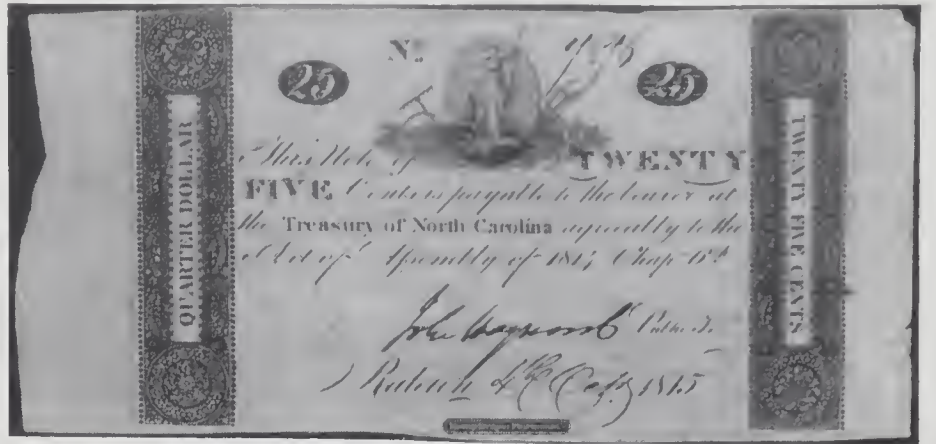 Nº
25 25
QUARTER DOLLAR
This Note of TWENTY
FIVE Cents is payable to the bearer at
the Treasury of North Carolina agreeably to the
Act of Assembly of 1814 Chap
John Haywood Public
Raleigh 1815
TWENTY FIVE CENTS